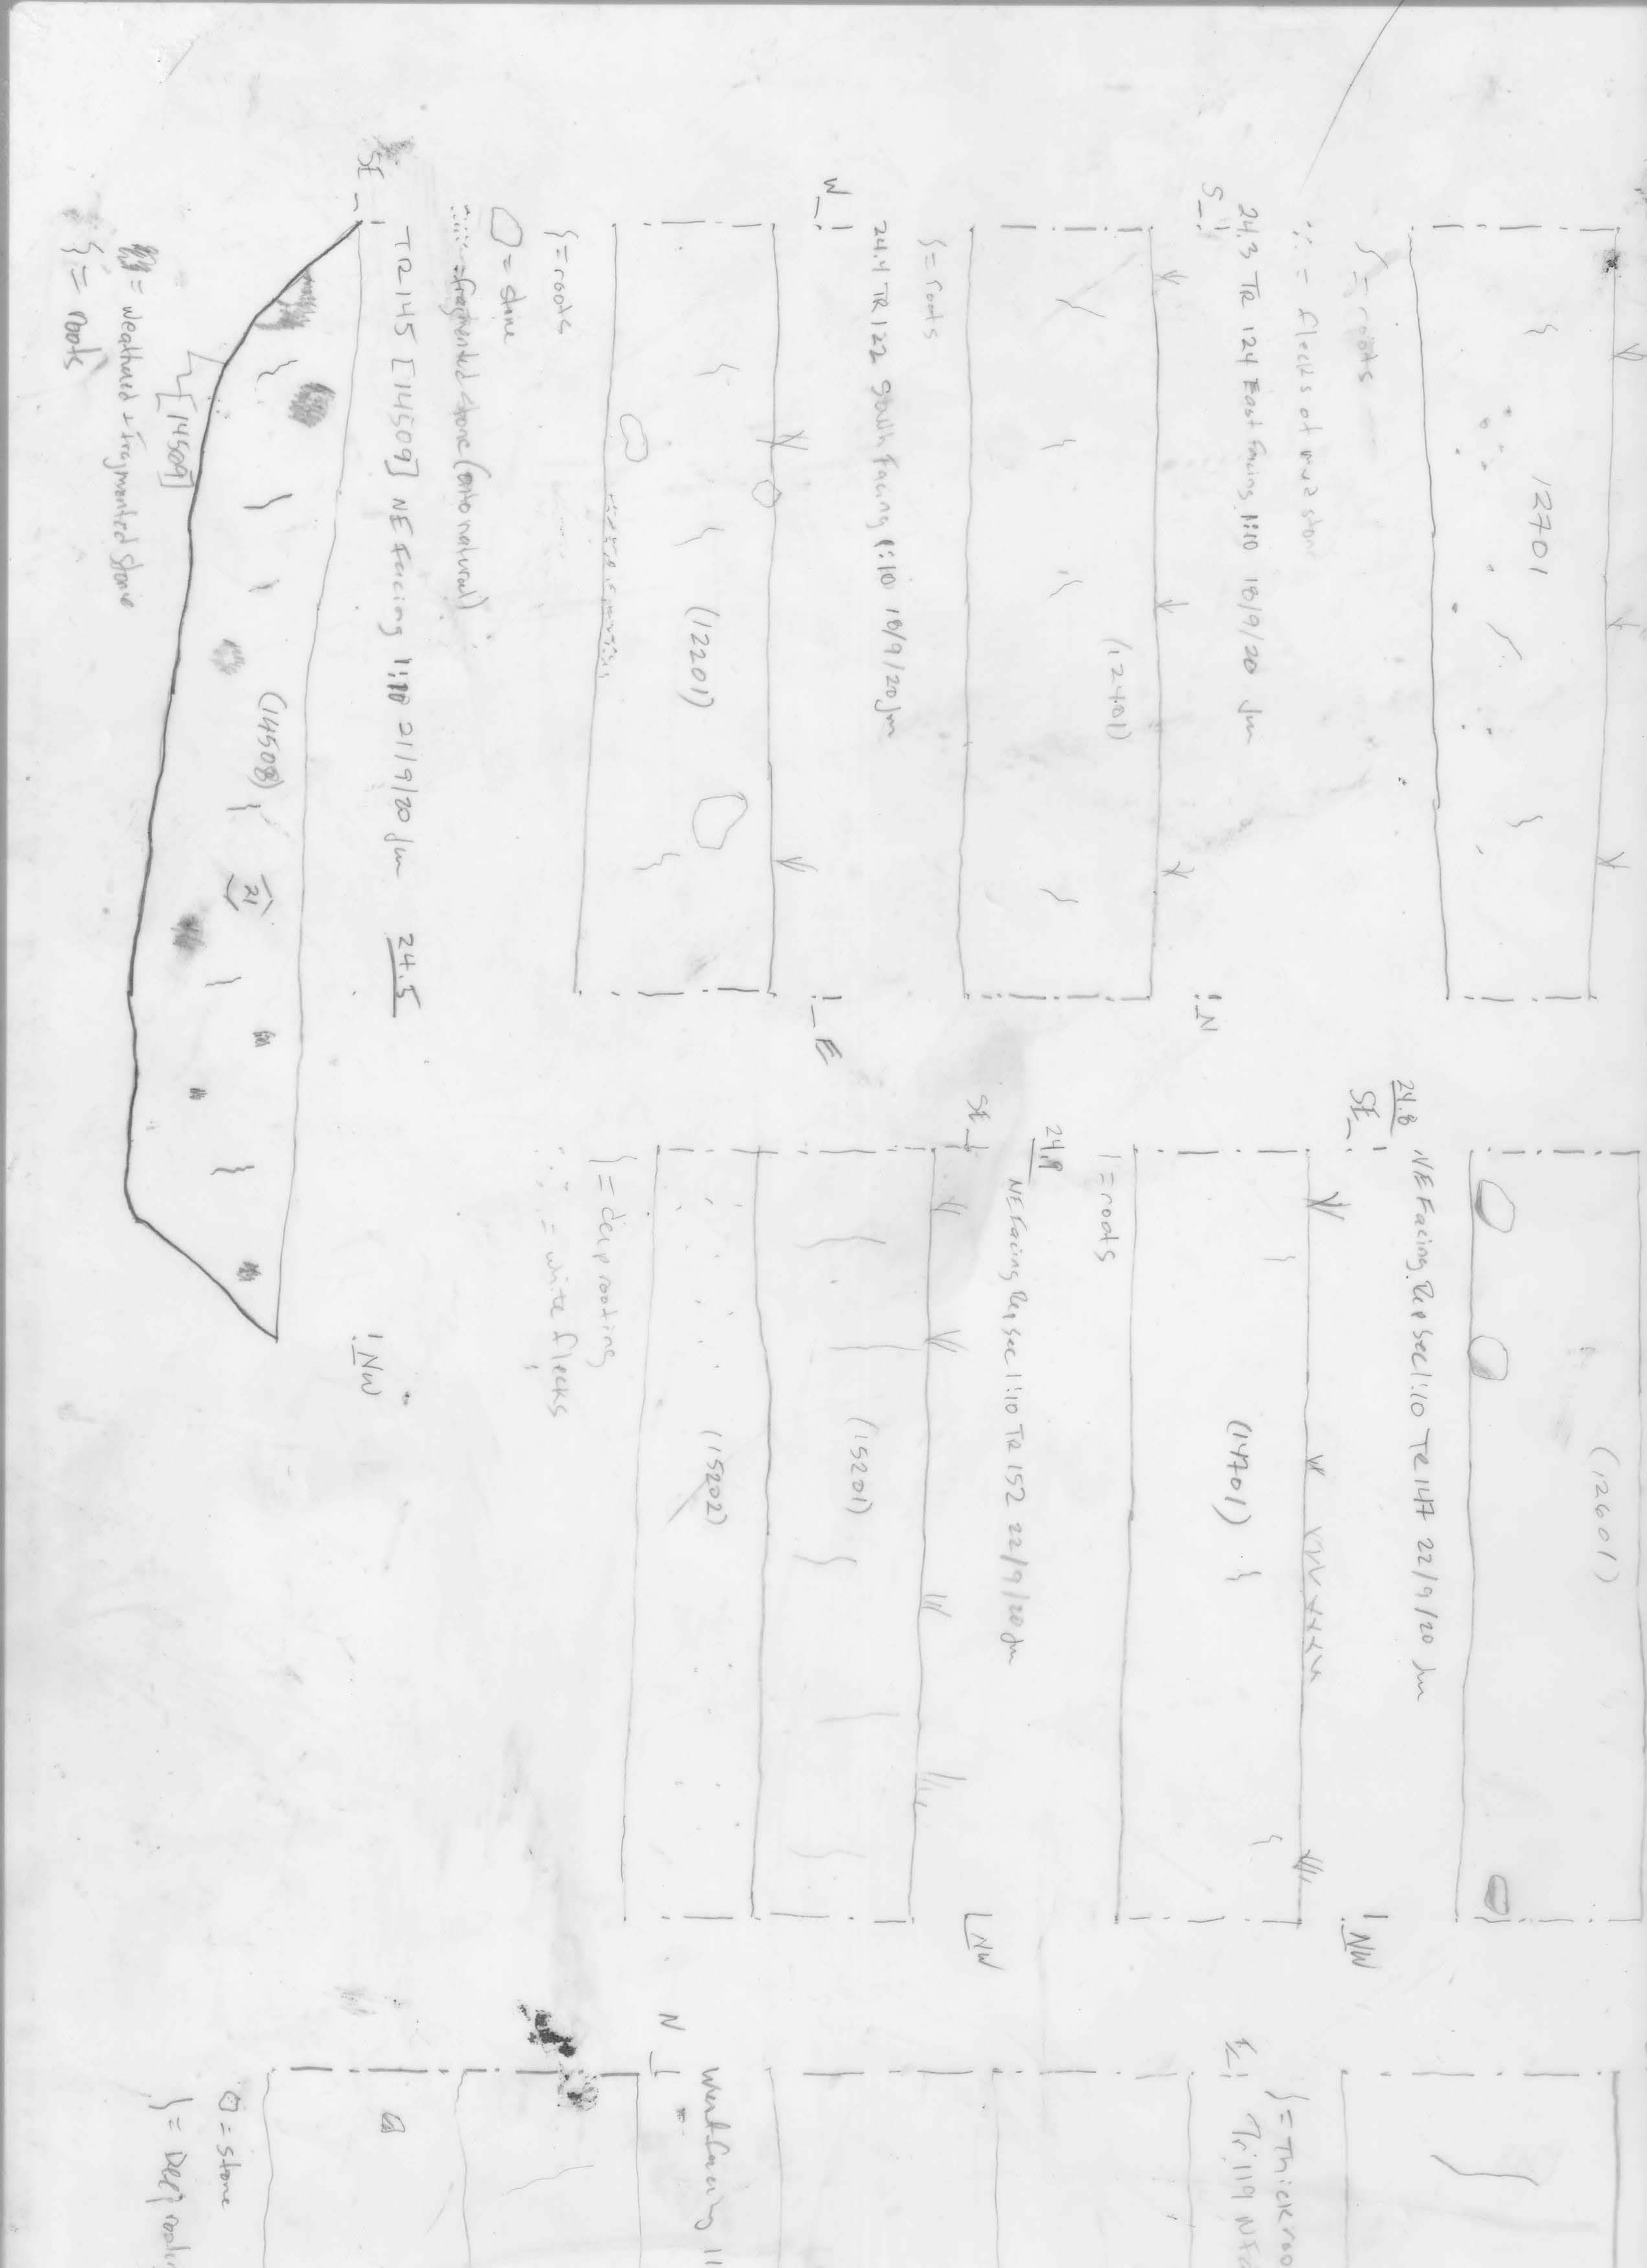 12701
= flecks of mudston
}=roots
24.3 TR 124 East facing 1:10 18/9/20 Jm
S
N
(12401)
}=roots
24.4 TR122 South facing 1:10 18/9/20 Jm
W
E
(12201)
}=roots
=stone
=fragmented stone (onto natural)
TR145 [14509] NE Facing 1:10 21/9/20 Jm 24.5
SE
NW
(14508)
21
[14509]
= weathered + fragmented stone
}= roots
(12601)
24.8
NE Facing Rep Sec 1:10 TR147 22/9/20 Jm
SE
NW
(14701)
=roots
24.9
NE Facing Rep Sec 1:10 TR152 22/9/20 Jm
SE
NW
(15201)
(15202)
}=deep rooting
= white flecks
}=Thick roo
Tr119
N
West facing 1
=stone
}= Deep